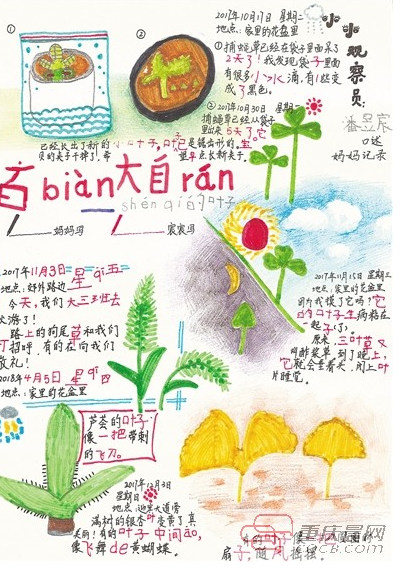 ①
②
2017年10月17日 星期二
地点:家里的花盆里
①捕蝇草已经在袋子里面呆了
2天了!我发现袋子里面
有很多小水滴,有1丝变
成了黑色。
②2017年10月30日
捕蝇草已经从袋子
里出来5天了。它
已经长出了新的小叶子,叶子是锯齿形的,宝
贝的夹子干掉了!希望早点长新夹子。
小小观察员:
潘昱宸
口述
妈妈记录
百biàn大自rán
shén qí的叶子
妈妈写
宸宸写
2017年11月3日 星qī五
地点:郊外路边
今天,我们大三班去
次游了!
路上的狗尾草和我们
打招呼,有的在向我们
敬礼!
2018年4月5日 星qī四
地点:家里的花盆里
芦荟的叶子
像一把带刺
的飞刀。
2017年11月15日 星期三
地点:家里的花盆里
因为我摸了它吗?它
的叶子生病粘在
一起了。
原来,三叶草又
叫酢浆草,到了晚上,
它就会垂着头,闭上叶
片睡觉。
2017年12月3日
星期日
地点:迎宾大道旁
满树的银杏叶变黄了真
美丽!有的叶子中间āo,
像飞舞de黄蝴蝶。
有的叶子像一把
扇子,随风摇摆。
重庆晨网